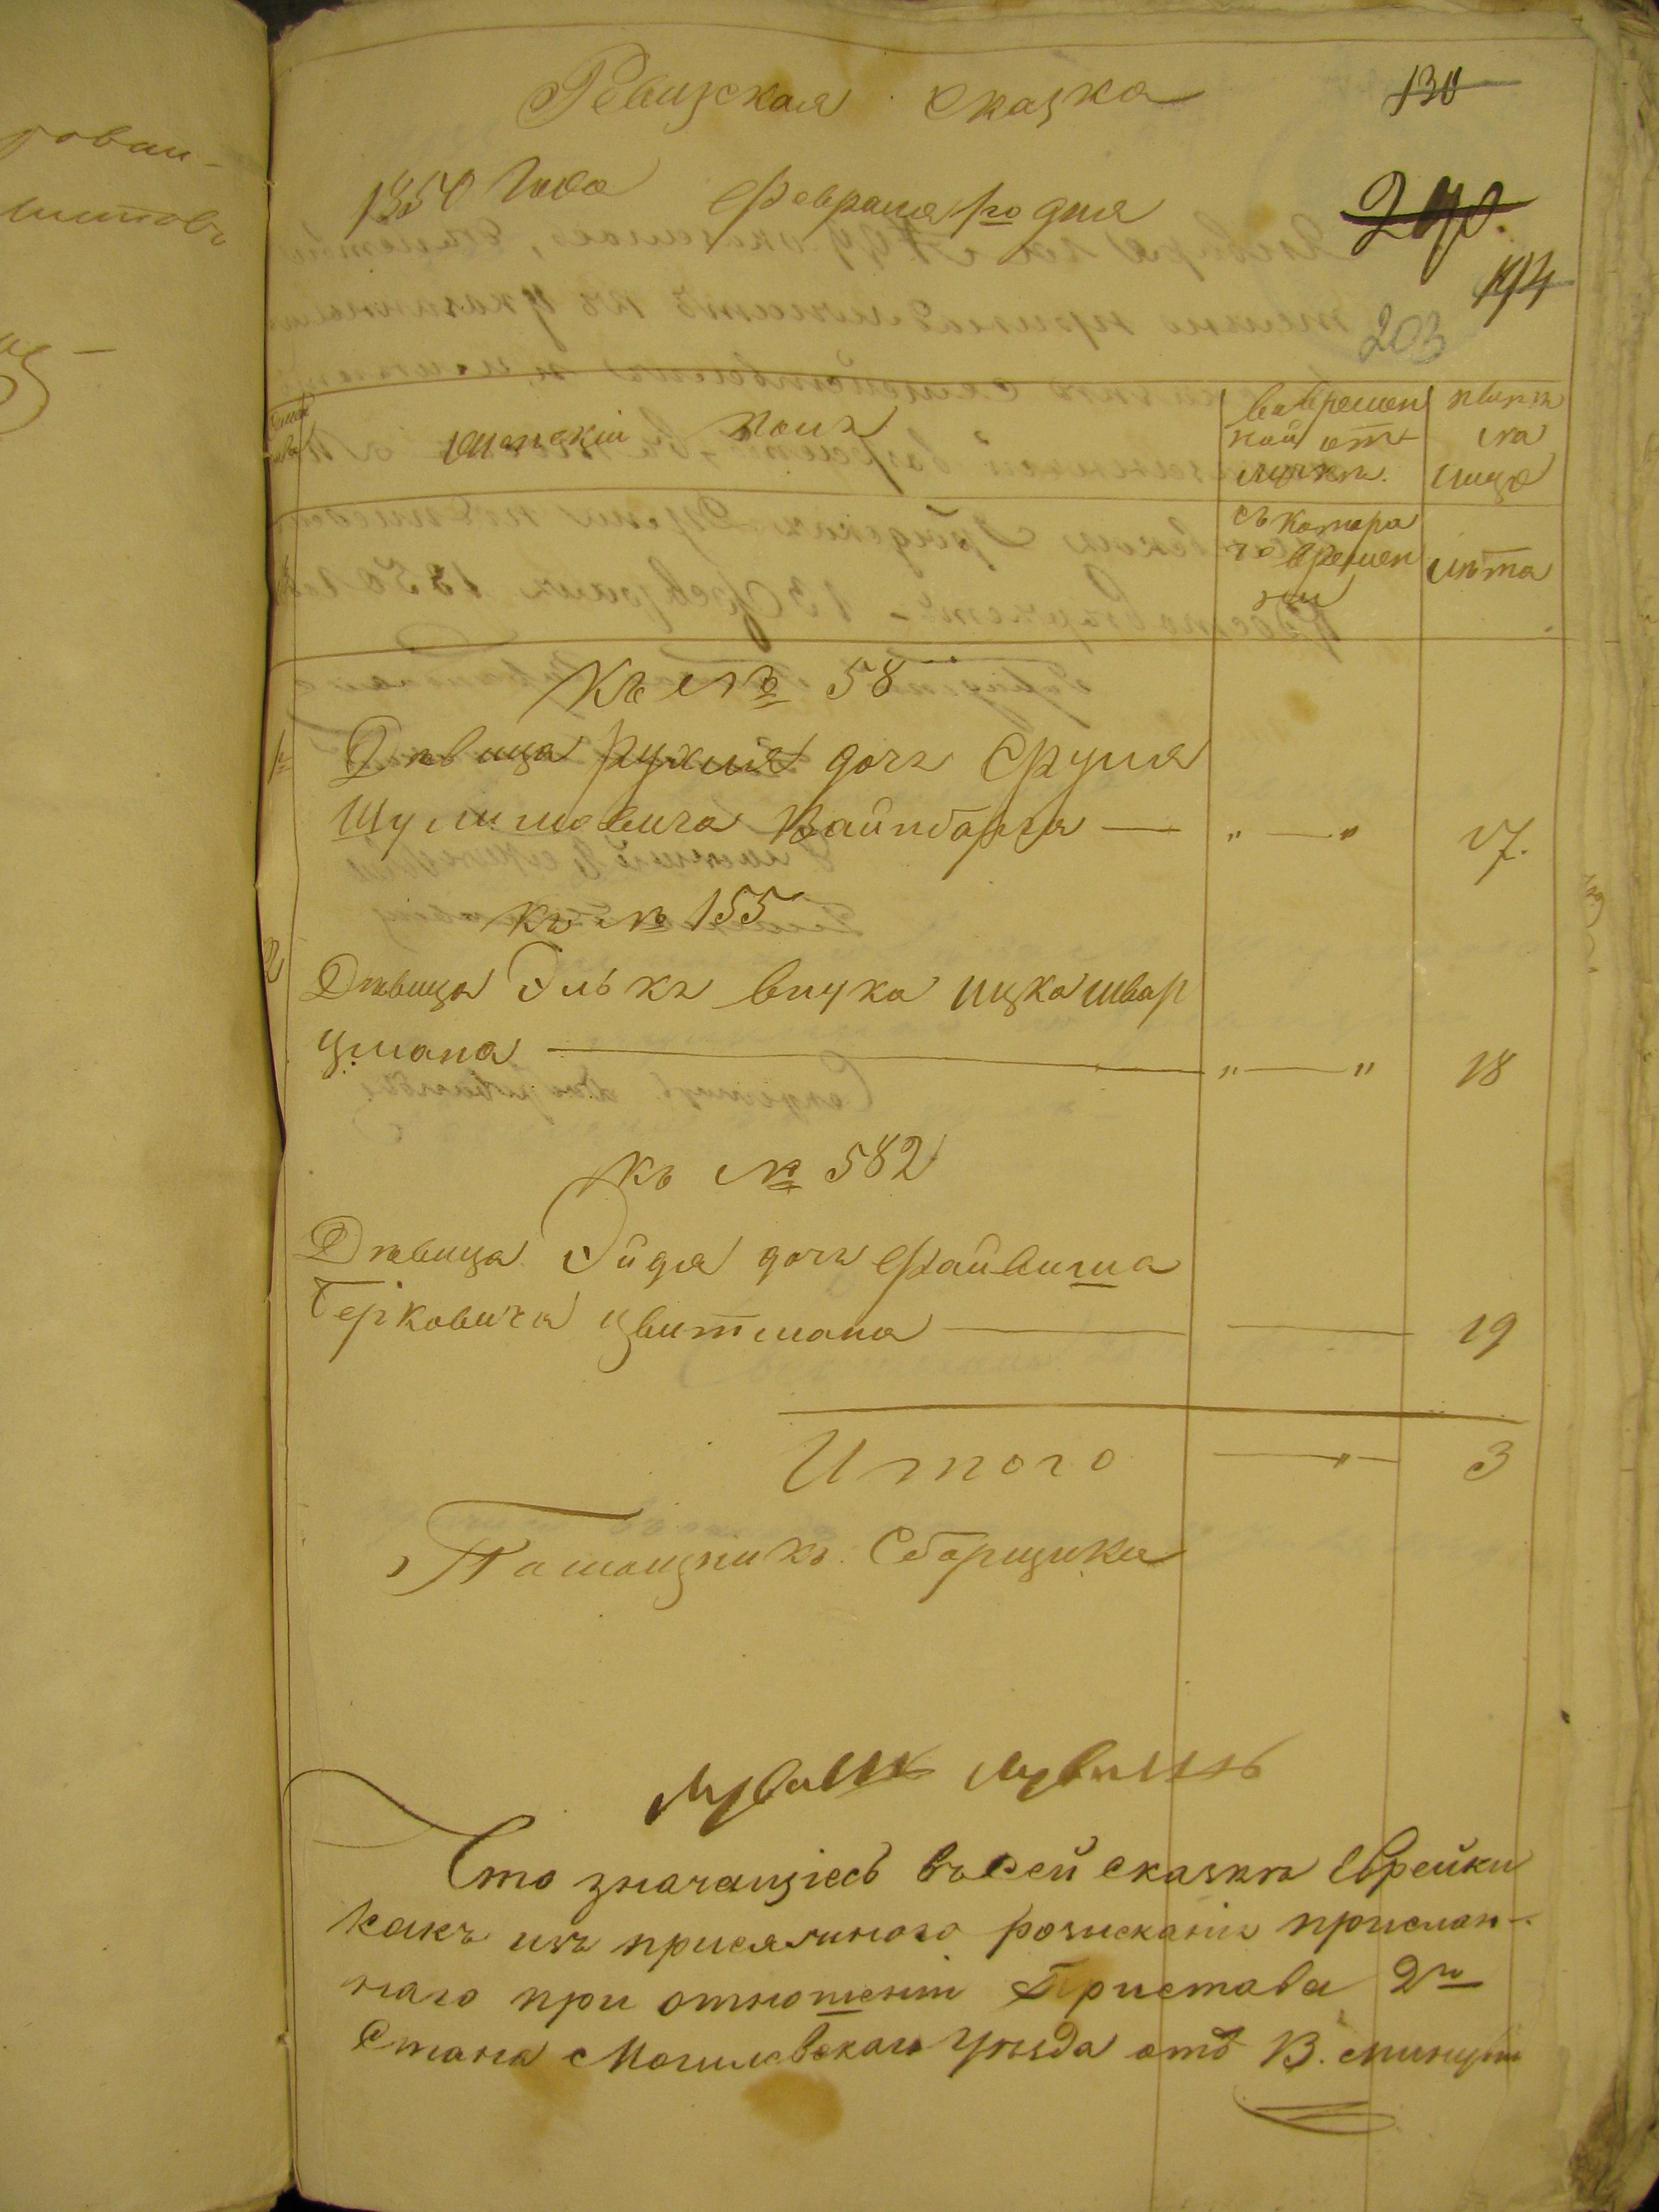 Ревизская Сказка
130
1850 Года Февраля го дня
290.
194
203
женский полъ
во времен
ной от
лучкѣ.
нынѣ
на
лицо
съ котора
го времен
ни
лѣта
Къ № 58
1 Дѣвица Рухля дочъ Сруля
Шулимовича Вайнбарга — „ — „ 17.
къ № 155
2 Дѣвица Элька внука Ицка Швар
цмана — „ — „ 18
къ № 582
Дѣвица Эйдя дочъ Файвиша
Берковича Цвитмана — 19
Итого — „ — 3
Помощникъ Сборщика
Что значащіесь въ сей сказкѣ Еврейки
какъ изъ присяжного розисканія прислан-
наго при отношеніи Пристава 2го
Стана Могилевскаго уѣзда отъ 13. минув